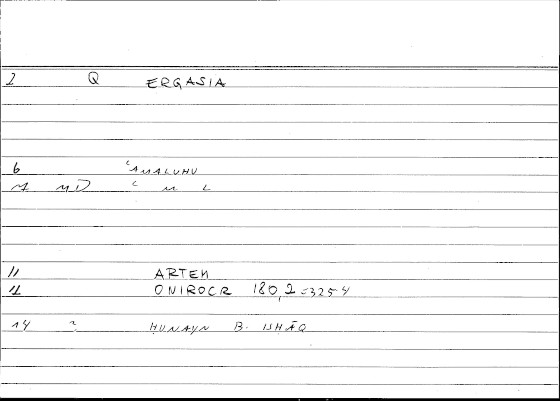 2 Q ERGASIA
6 ʿAMALUHU
M MD ʿ M L
11 ARTEM
12 ONIROCR 180,2 = 325 4
14 HUNAYN B. ISHĀQ